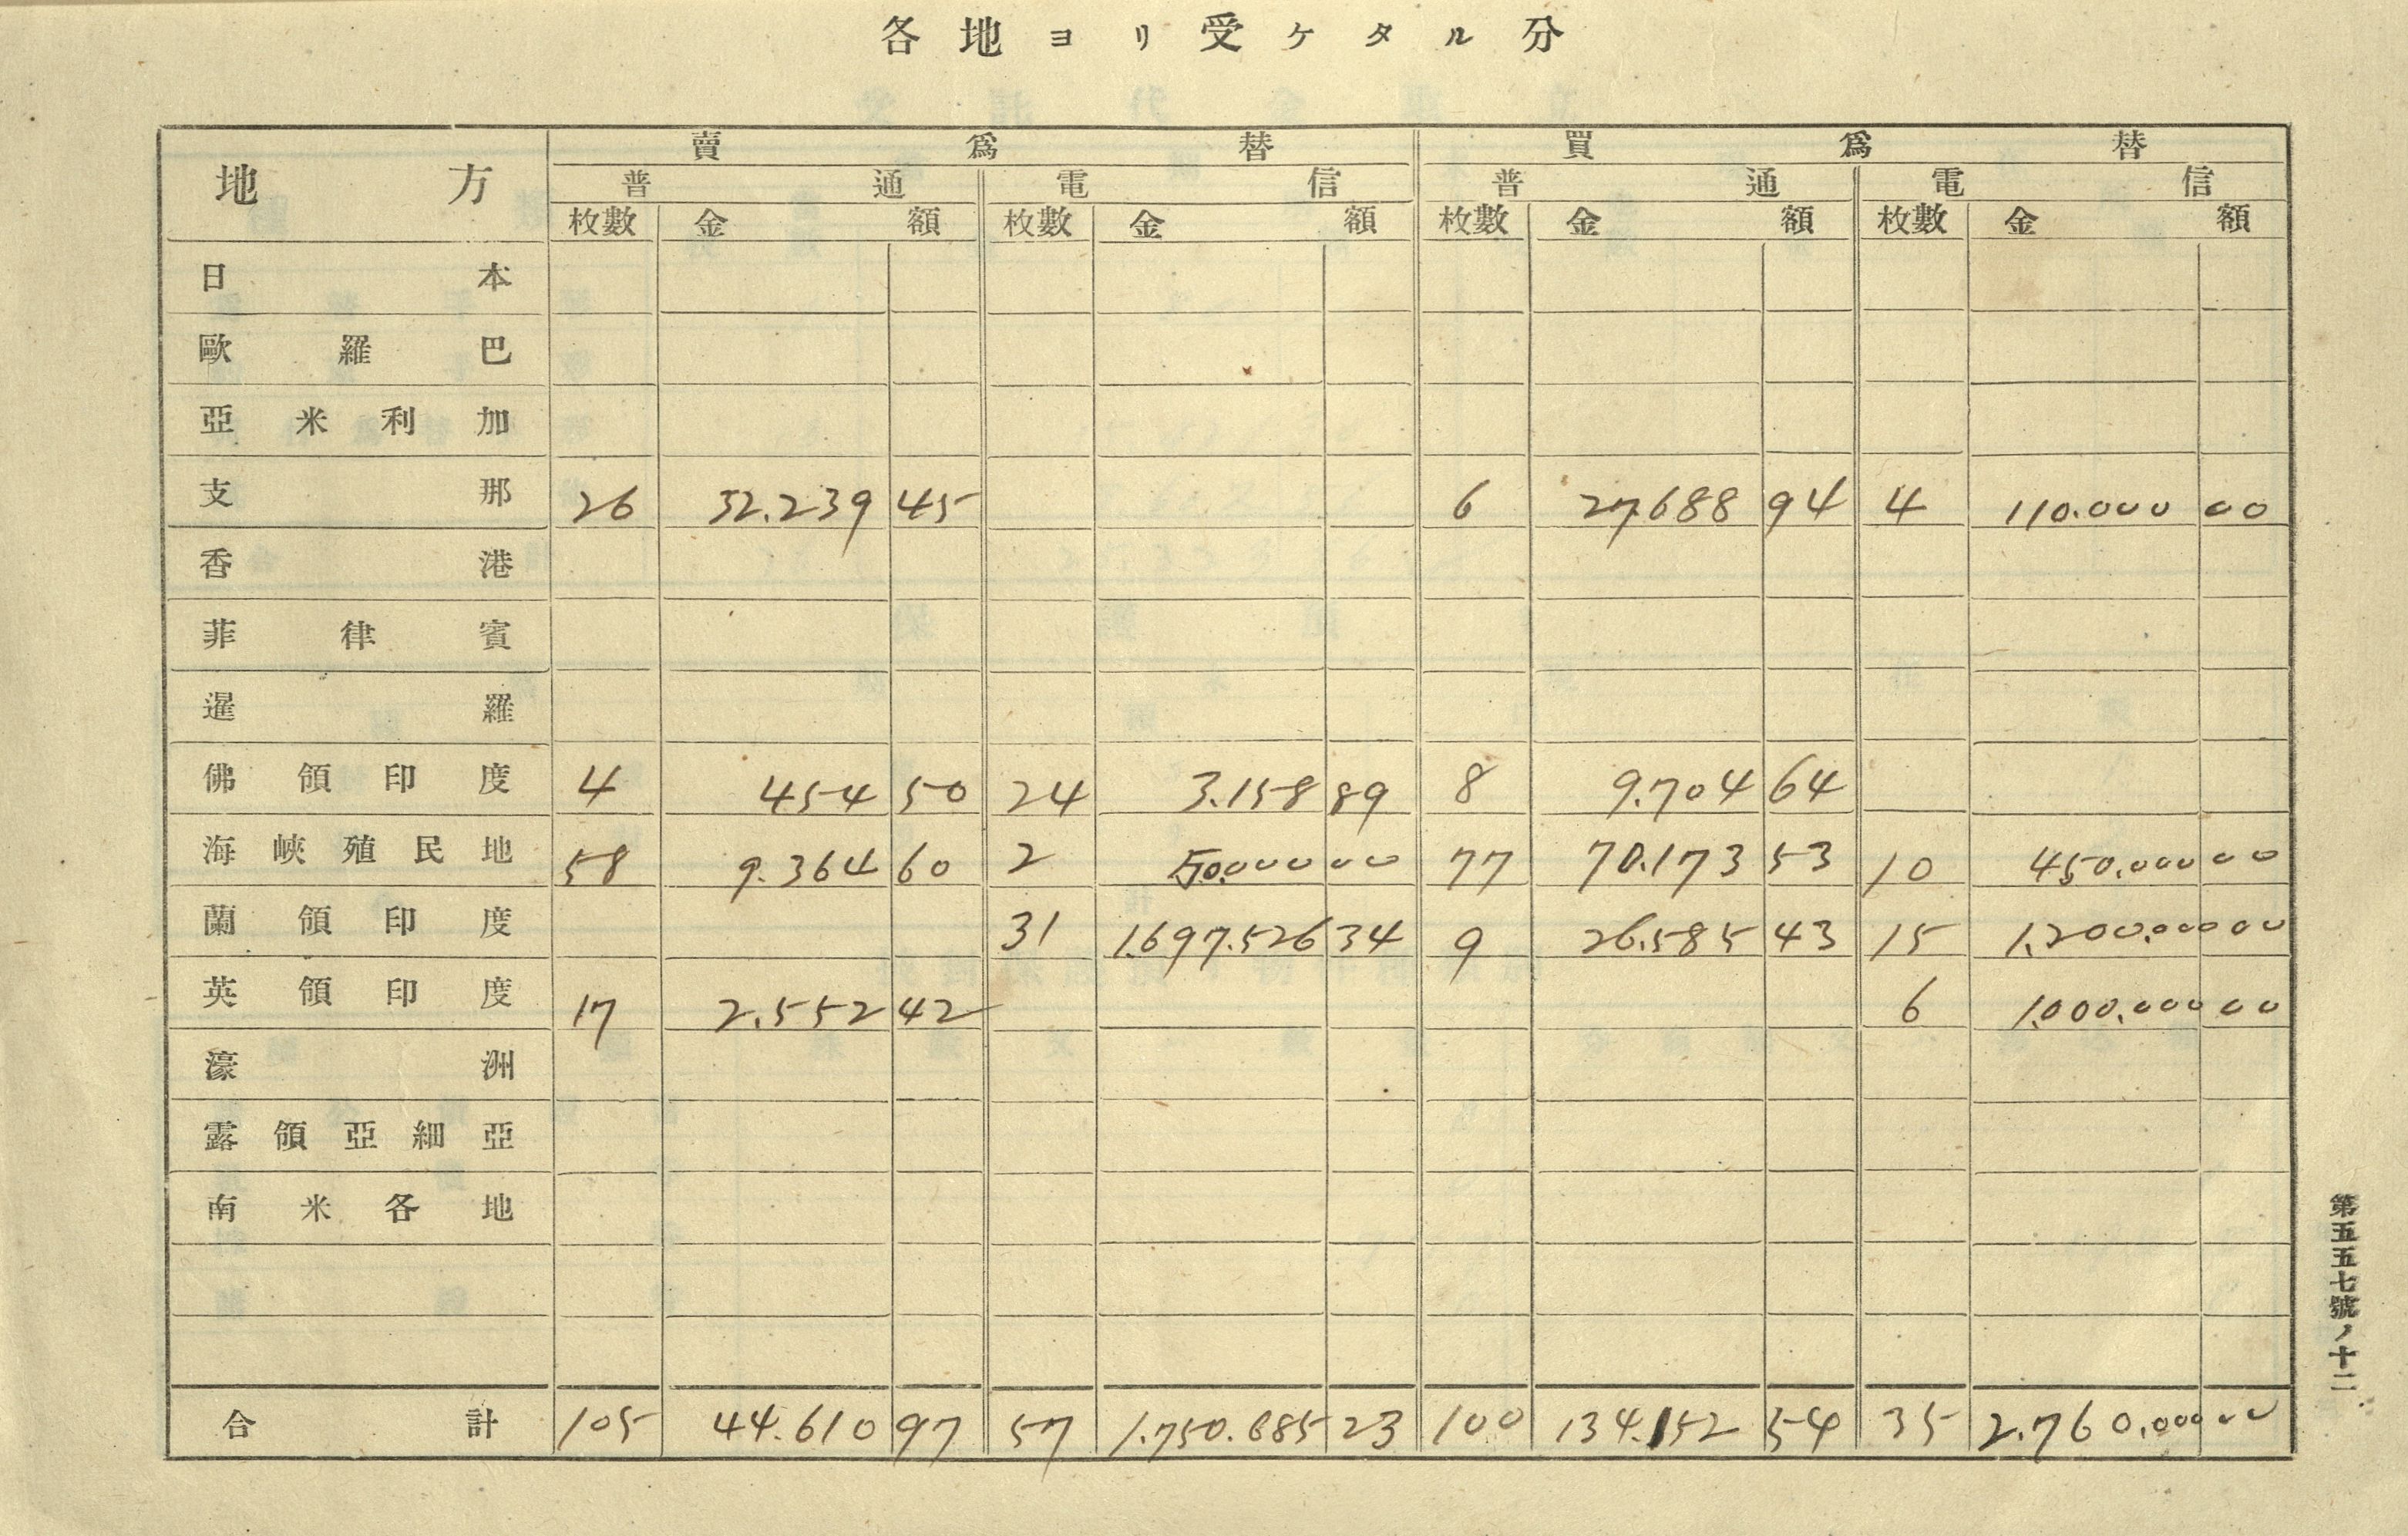 各地ヨリ受ケタル分
地方 賣爲替 買爲替
普通 電信 普通 電信
枚數 金額 枚數 金額 枚數 金額 枚數 金額
日本
歐羅巴
亞米利加
支那 26 32.239 45 6 27.688 94 4 110.000 00
香港
菲律賓
暹羅
佛領印度 4 454 50 24 3.158 89 8 9.704 64
海峽殖民地 58 9.364 60 2 50.000 00 77 70.173 53 10 450.000 00
蘭領印度 31 1.697.526 34 9 26.585 43 15 1.200.000 00
英領印度 17 2.552 42 6 1.000.000 00
濠洲
露領亞細亞
南米各地
合計 105 44.610 97 57 1.750.685 23 100 134.152 54 35 2.760.000 00
第五五七號ノ十二